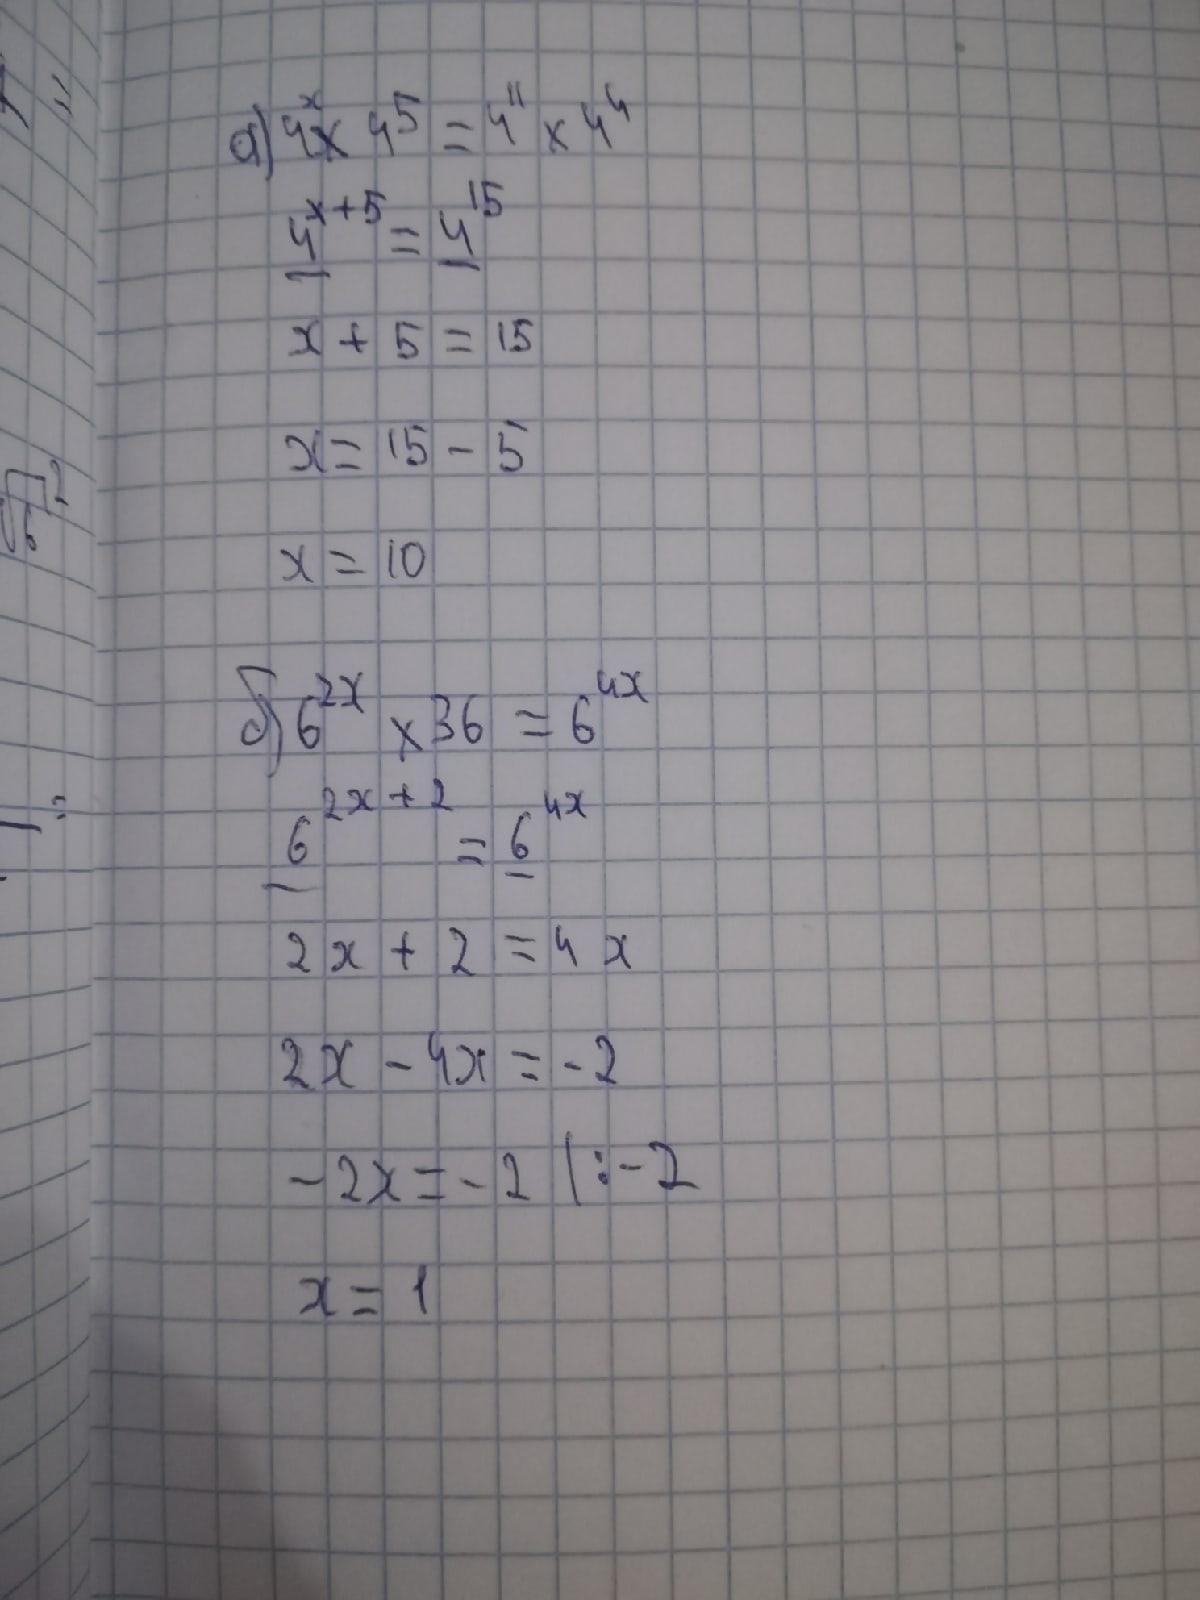 а) 4ˣ × 4⁵ = 4¹¹ × 4⁴
4ˣ⁺⁵ = 4¹⁵
x + 5 = 15
x = 15 - 5
x = 10
б) 6²ˣ × 36 = 6⁴ˣ
6²ˣ⁺² = 6⁴ˣ
2x + 2 = 4x
2x - 4x = -2
-2x = -2 |:-2
x = 1